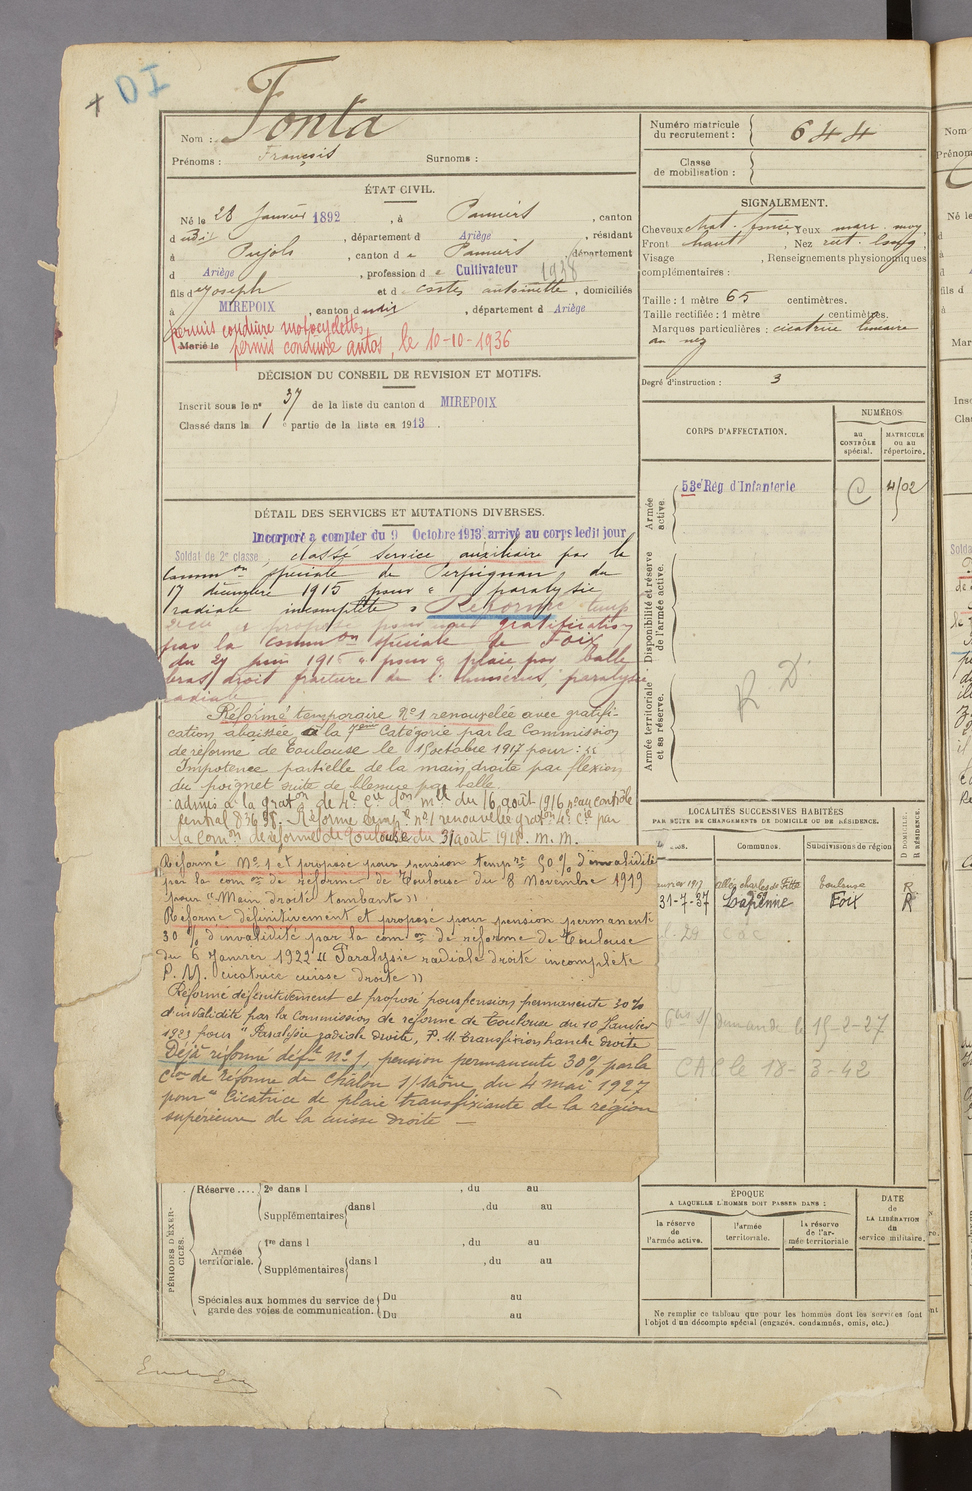 + DI
Nom : Fonta
Prénoms : François Surnoms :
ÉTAT CIVIL.
Né le 28 Janvier 1892, à Pamiers, canton
dudit, département d Ariège, résidant
à Pujols, canton de Pamiers département
d Ariège, profession de Cultivateur 1938
fils de Joseph et de Costes antoinette, domiciliés
à MIREPOIX, canton dudit, département d Ariège
permis conduire motocyclettes
Marié le permis conduire autos, le 10-10-1936
DÉCISION DU CONSEIL DE REVISION ET MOTIFS.
Inscrit sous le n° 37 de la liste du canton d MIREPOIX
Classé dans la 1e partie de la liste en 1913.
DÉTAIL DES SERVICES ET MUTATIONS DIVERSES.
Incorporé à compter du 9 Octobre 1913, arrivé au corps ledit jour
Soldat de 2e classe, classé service auxiliaire par la
Common spéciale de Perpignan, du
17 décembre 1915 pour " paralysie
radiale incomplète " Réformé temp
proposé pour gratification
par la common spéciale de Foix
du 27 juin 1916 " pour " plaie par balle
bras droit fracture de l'humérus, paralysie
radiale
Réformé temporaire N°1 renouvelée avec gratifi-
cation abaissée à la 7ème Catégorie par la Commission
de réforme de Toulouse le 15 octobre 1917 pour : "
Impotence partielle de la main droite par flexion
du poignet suite de blessure par balle.
Admis à la graton de 4e Cie don mlle du 16 août 1916 n° au contrôle
central 83698. Réformé temp. n°1 renouvelée graton 4e Cie par
la Comon de réforme de Toulouse du 31 août 1918. M. M.
Réformé N°1 et proposé pour pension tempre 50% d'invalidité
par la comon de réforme de Toulouse du 8 Novembre 1919
pour "Main droite tombante"
Réformé définitivement et proposé pour pension permanente
30% d'invalidité par la comon de réforme de Toulouse
du 6 Janvier 1922 "Paralysie radiale droite incomplète
P. M. cicatrice cuisse droite"
Réformé définitivement et proposé pour pension permanente 30%
d'invalidité par la Commission de réforme de Toulouse du 10 Janvier
1923 pour "Paralysie radiale droite, P. M. transfixion hanche droite
Déjà réformé déft N°1, pension permanente 30% par la
Cion de réforme de Châlon s/Saône, du 4 mai 1927
pour " Cicatrice de plaie transfixiante de la région
supérieure de la cuisse droite —
PÉRIODES D'EXERCICES.
Réserve.... 2e dans l , du au
Supplémentaires dans l , du au
Armée territoriale. 1re dans l , du au
Supplémentaires dans l , du au
Spéciales aux hommes du service de garde des voies de communication. Du au
Du au
Numéro matricule du recrutement : 644
Classe de mobilisation :
SIGNALEMENT.
Cheveux chat. foncé, Yeux marr. moy,
Front haut, Nez rect. long,
Visage , Renseignements physionomiques
complémentaires :
Taille : 1 mètre 65 centimètres.
Taille rectifiée : 1 mètre centimètres.
Marques particulières : cicatrice linéaire
au nez
Degré d'instruction : 3
CORPS D'AFFECTATION.
NUMÉROS
au CONTRÔLE spécial.
MATRICULE ou au répertoire.
Armée active.
53e Rég d'Infanterie C 4102
Disponibilité et réserve de l'armée active.
Armée territoriale et sa réserve.
R. D.
LOCALITÉS SUCCESSIVES HABITÉES
PAR SUITE DE CHANGEMENTS DE DOMICILE OU DE RÉSIDENCE.
Communes. Subdivisions de région D DOMICILE. R RÉSIDENCE.
1917 Toulouse R
31-7-37 Lapenne Foix R
15-2-27
CAP le 18-3-42
ÉPOQUE
A LAQUELLE L'HOMME DOIT PASSER DANS :
la réserve de l'armée active.
l'armée territoriale.
la réserve de l'armée territoriale
DATE de LA LIBÉRATION du service militaire.
Ne remplir ce tableau que pour les hommes dont les services font
l'objet d'un décompte spécial (engagés, condamnés, omis, etc.)